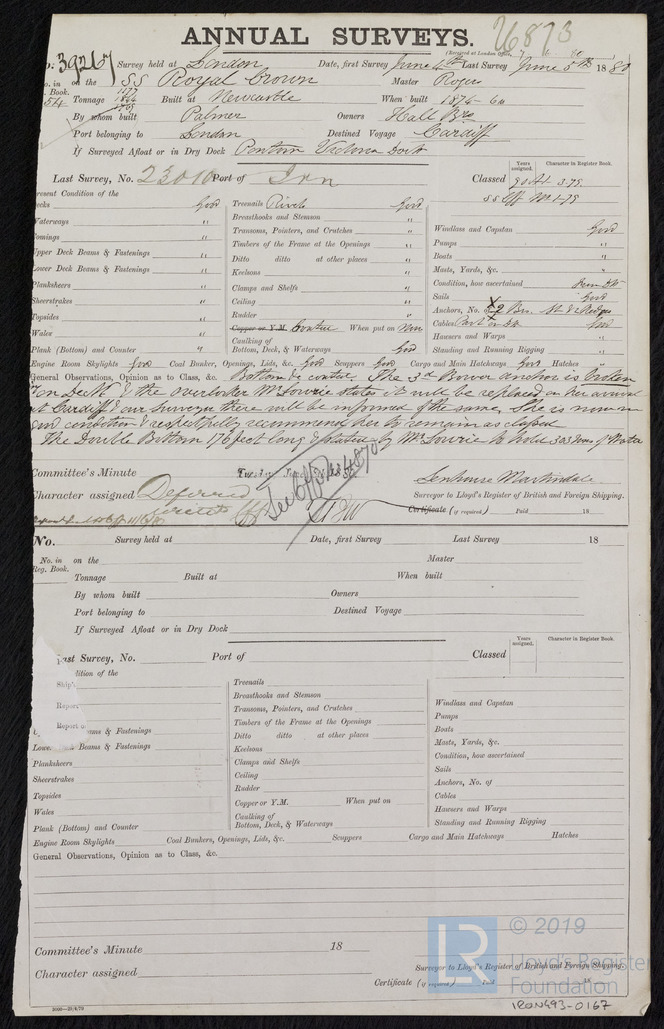 ANNUAL SURVEYS.
26873
(Received at London Office, 7. 6. 80
39267 Survey held at London Date, first Survey June 4th Last Survey June 5th 1880
on the SS Royal Crown Master
Book. Tonnage 1577 Built at Newcastle When built 1874-6
54
By whom built Palmer Owners Hall Bros
Port belonging to London Destined Voyage Cardiff
If Surveyed Afloat or in Dry Dock Pontoon Victoria Dock
Last Survey, No. 23010 Port of Classed
Years assigned. Character in Register Book.
3.79.
Present Condition of the
Decks Good Treenails Good
Waterways " Breasthooks and Stemson "
Comings " Transoms, Pointers, and Crutches " Windlass and Capstan Good
Upper Deck Beams & Fastenings " Timbers of the Frame at the Openings " Pumps "
Lower Deck Beams & Fastenings " Ditto ditto at other places " Boats "
Planksheers " Keelsons " Masts, Yards, &c. "
Sheerstrakes " Clamps and Shelfs " Condition, how ascertained from Dk
Topsides " Ceiling " Sails Good
Wales " Rudder " Anchors, No. of 2 Brs. St & Kedges
Plank (Bottom) and Counter " Copper or Y.M. When put on Cables
Caulking of Bottom, Deck, & Waterways Good Hawsers and Warps "
Standing and Running Rigging "
Engine Room Skylights Good Coal Bunker, Openings, Lids, &c. Good Scuppers Good Cargo and Main Hatchways Good Hatches "
General Observations, Opinion as to Class, &c. The 3rd Bower anchor is broken
& the overlooker Mr Lowrie states it will be replaced on her arrival
at Cardiff & our surveyor there will be informed of the same. She is now in
condition & respectfully recommend her to remain as classed
The Double Bottom 176 feet long & stated by Mr Lowrie to hold 303 tons of Water
Committee's Minute
Character assigned Deferred
Senhouse Martindale
Surveyor to Lloyd's Register of British and Foreign Shipping.
Certificate (if required) Paid 18
No. Survey held at Date, first Survey Last Survey 18
No. in Reg. Book. on the Master
Tonnage Built at When built
By whom built Owners
Port belonging to Destined Voyage
If Surveyed Afloat or in Dry Dock
Last Survey, No. Port of Classed
Years assigned. Character in Register Book.
Condition of the
Ship's
Report
Report
Treenails
Breasthooks and Stemson
Transoms, Pointers, and Crutches Windlass and Capstan
Timbers of the Frame at the Openings Pumps
Beams & Fastenings Ditto ditto at other places Boats
Lower Deck Beams & Fastenings Keelsons Masts, Yards, &c.
Planksheers Clamps and Shelfs Condition, how ascertained
Sheerstrakes Ceiling Sails
Topsides Rudder Anchors, No. of
Wales Copper or Y.M. When put on Cables
Plank (Bottom) and Counter Caulking of Bottom, Deck, & Waterways Hawsers and Warps
Standing and Running Rigging
Engine Room Skylights Coal Bunkers, Openings, Lids, &c. Scuppers Cargo and Main Hatchways Hatches
General Observations, Opinion as to Class, &c.
Committee's Minute 18
Character assigned
Surveyor to Lloyd's Register of British and Foreign Shipping.
Certificate (if required) Paid 18
LR
© 2019
Lloyd's Register
Foundation
IRON493-0167